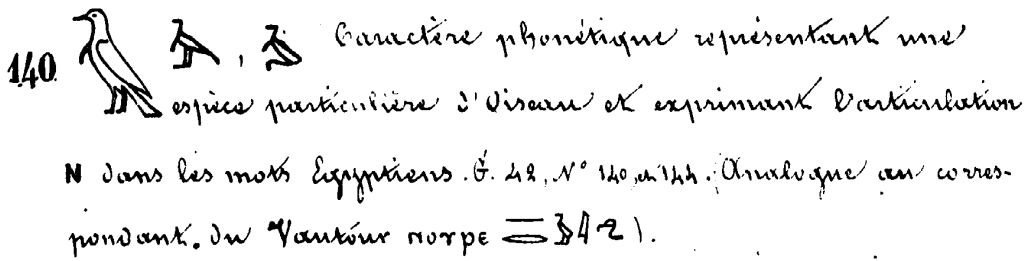 140. Caractère phonétique représentant une
espèce particulière d'Oiseau et exprimant l'articulation
N dans les mots Egyptiens. G. 42, N° 140, à 144. (Analogue au corres-
pondant. du Vautour ⲛⲟⲩⲣⲉ ).